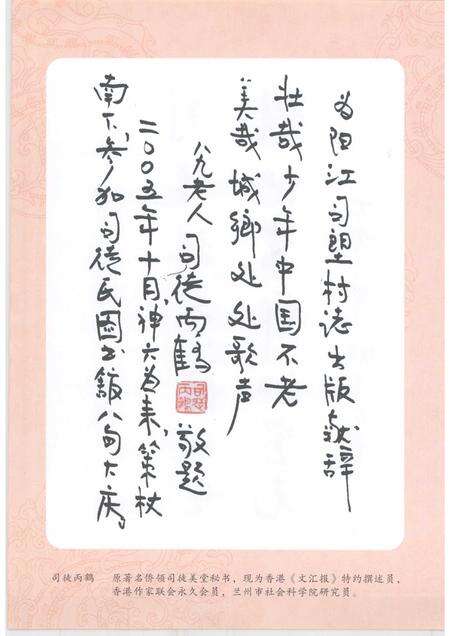 为阳江司塱村誌出版献辞
壮哉少年中国不老
美哉城鄉处处歌声
八九老人 司徒丙鶴 敬题
二〇〇五年十月,神六 来,策杖
南下参加司徒氏圖书館八旬大庆。
司徒丙鹤 原著名侨领司徒美堂秘书,现为香港《文汇报》特约撰述员,
香港作家联会永久会员,兰州市社会科学院研究员。